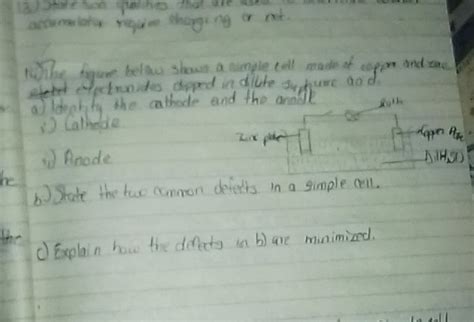 13.) State two qualities that are used to determine
accumulator require charging or not.
14.) The figure below shows a simple cell made of copper and zinc
electronides dipped in dilute
a) Identify the cathode and the anode
i) Cathode
Bulb
Zinc plate
Copper
ii) Anode
b) State the two common defects in a simple cell.
c) Explain how the defects in b) are minimized.